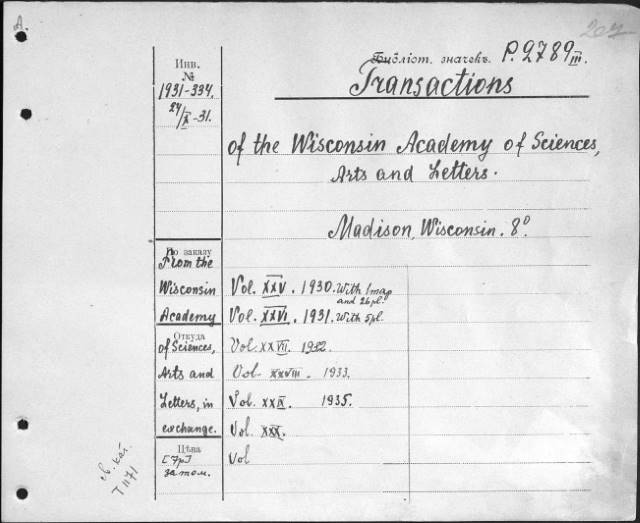 A.
207
Инв.
№
1931-334.
24/X-31.
Библіот. значекъ. P.2789 III.
Transactions
of the Wisconsin Academy of Sciences,
Arts and Letters.
Madison, Wisconsin. 8°
По заказу
From the
Wisconsin
Academy
Откуда
of Sciences,
Arts and
Letters, in
exchange.
Цѣна
[7р]
за том.
Vol. XXV. 1930. With 1 map
and 26 pl.
Vol. XXVI. 1931. With 5 pl.
Vol. XXVII. 1932.
Vol. XXVIII. 1933.
Vol. XXIX. 1935.
Vol. XXX.
Vol
св. кат.
T 1171